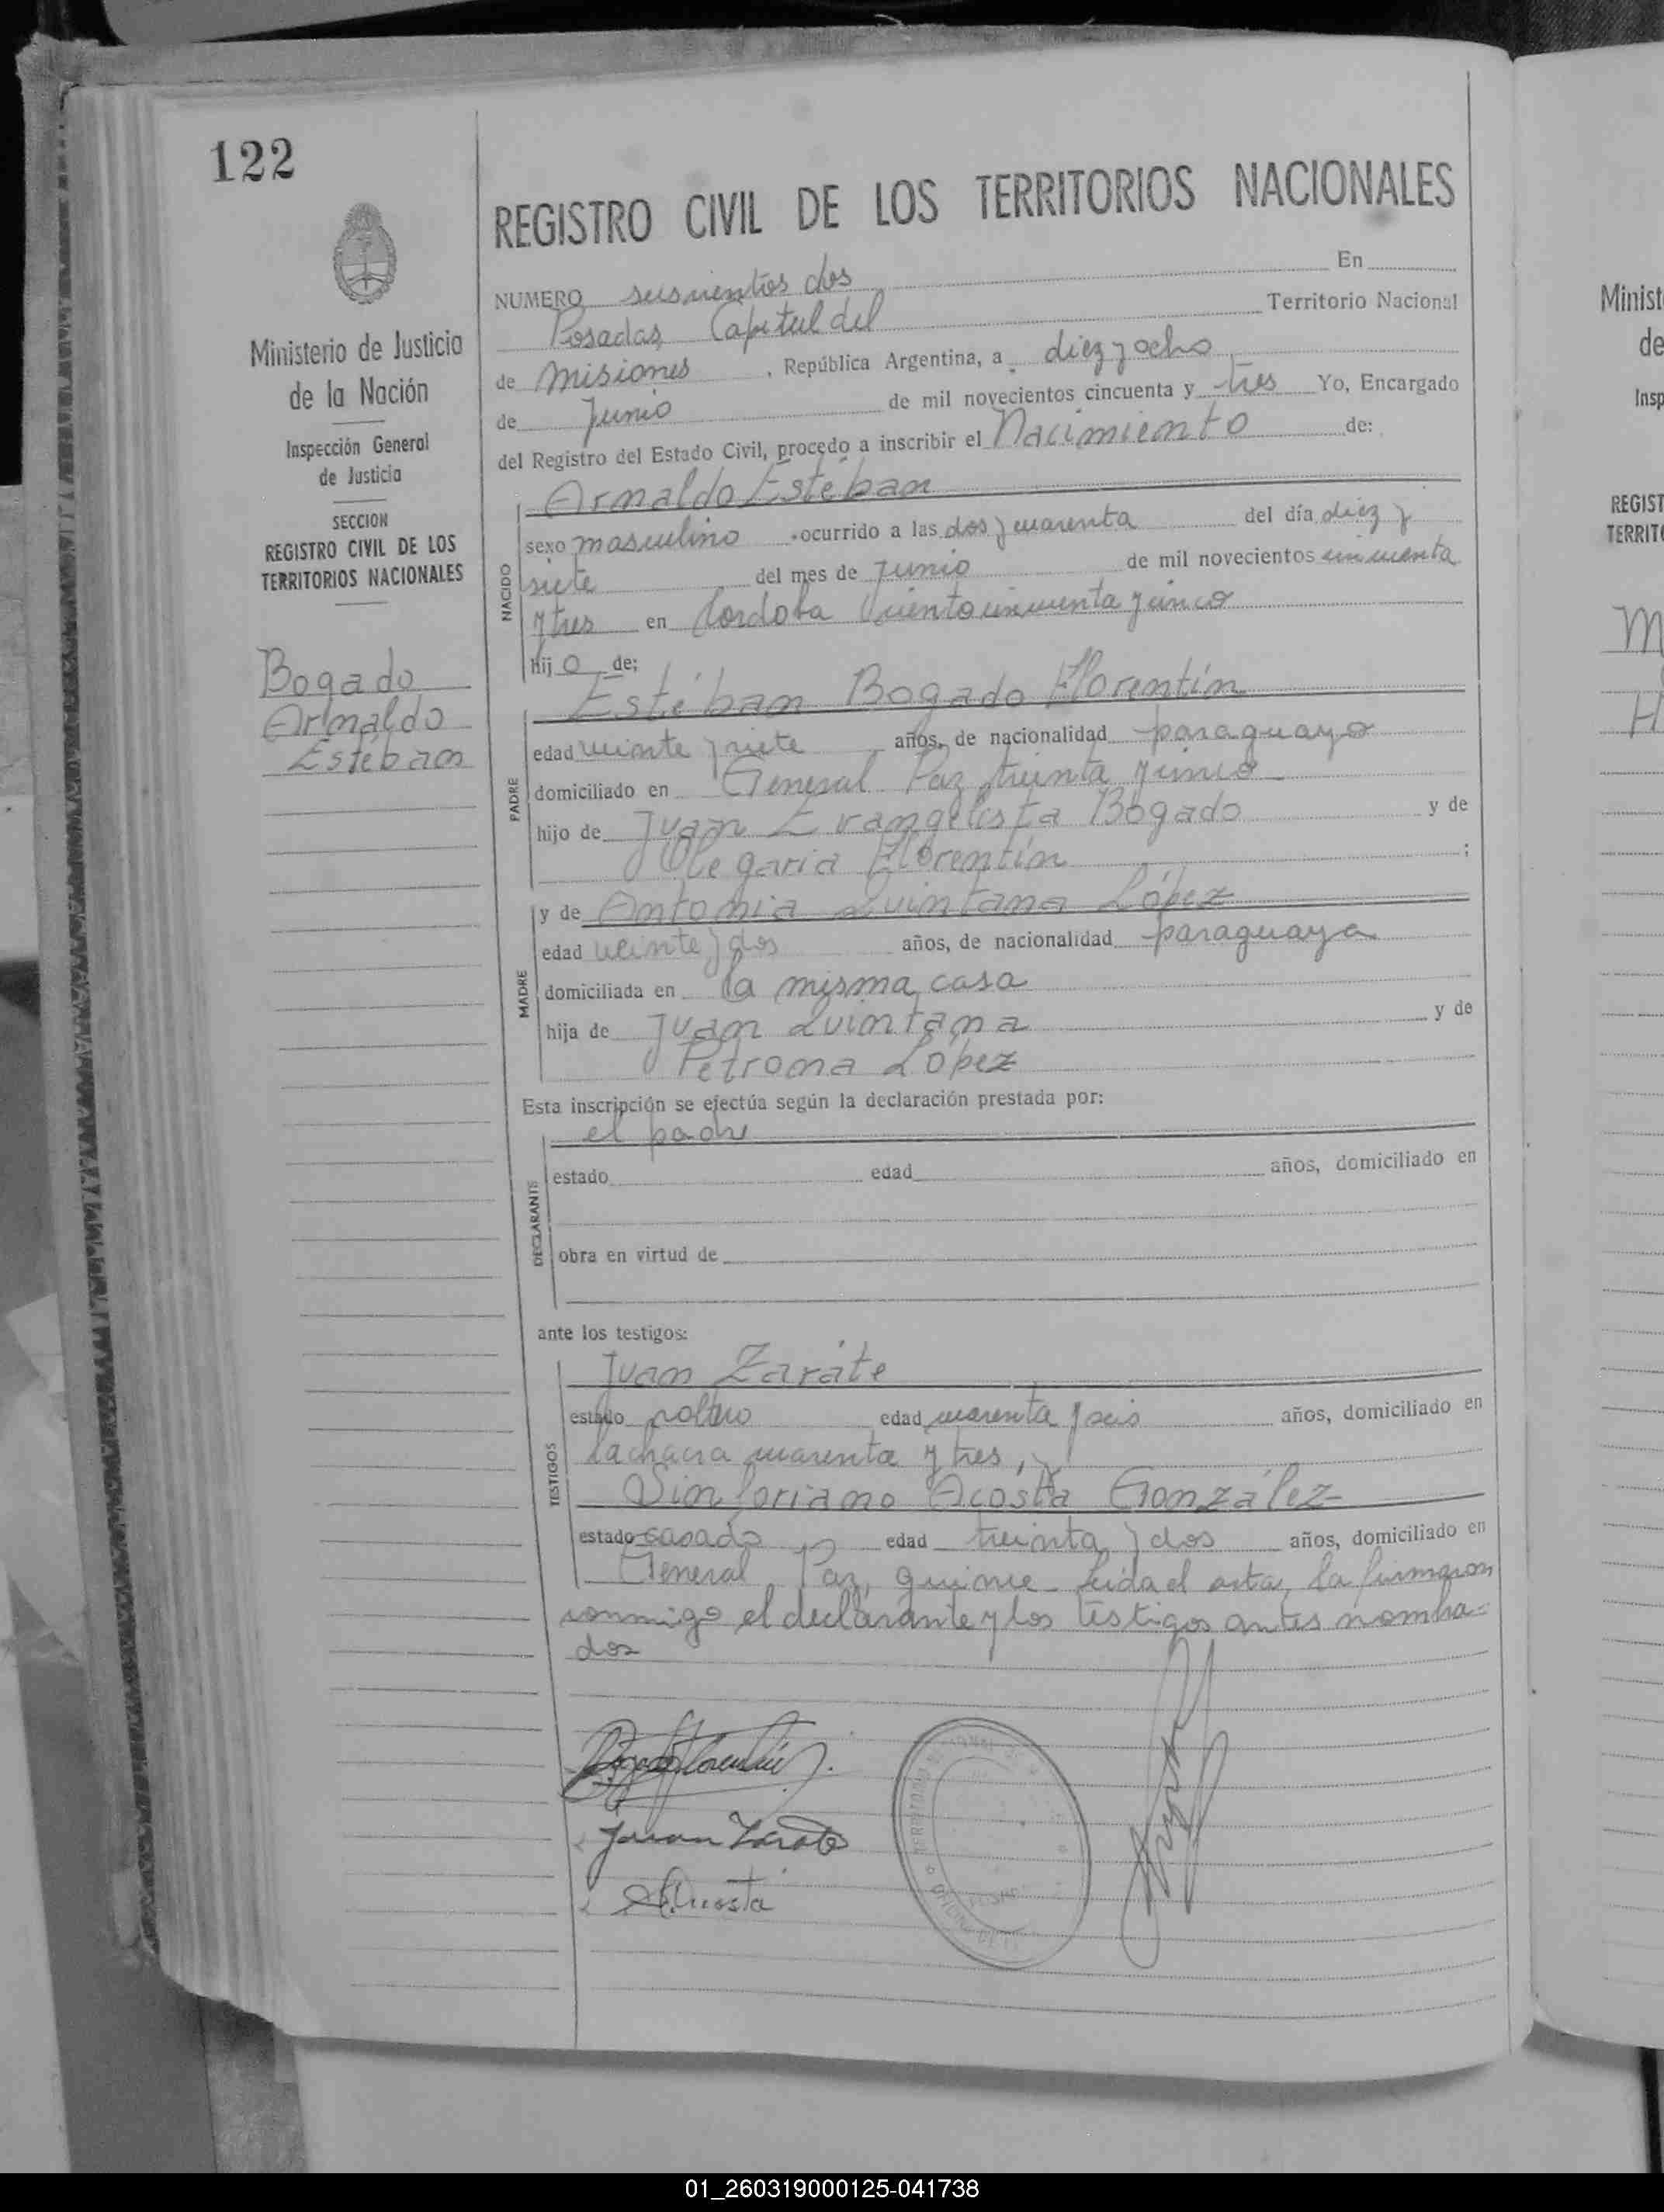 122
REGISTRO CIVIL DE LOS TERRITORIOS NACIONALES
Ministerio de Justicia
de la Nación
Inspección General
de Justicia
SECCION
REGISTRO CIVIL DE LOS
TERRITORIOS NACIONALES
Bogado
Arnaldo
Estéban
NUMERO seiscientos dos En
Posadas, Capital del Territorio Nacional
de Misiones, República Argentina, a diez y ocho
de Junio de mil novecientos cincuenta y tres Yo, Encargado
del Registro del Estado Civil, procedo a inscribir el Nacimiento de:
Arnaldo Estéban
NACIDO
sexo masculino ocurrido a las dos y cuarenta del día diez y
siete del mes de Junio de mil novecientos cincuenta
y tres en Cordoba ciento cincuenta y cinco
hij o de:
Estéban Bogado Florentín
PADRE
edad veinte y siete años, de nacionalidad paraguayo
domiciliado en General Paz treinta y cinco
hijo de Juan Evangelista Bogado y de
Olegaria Florentín ;
y de Antonia Quintana López
MADRE
edad veinte y dos años, de nacionalidad paraguaya
domiciliada en la misma casa
hija de Juan Quintana y de
Petrona López
Esta inscripción se efectúa según la declaración prestada por:
el padre
DECLARANTE
estado edad años, domiciliado en
obra en virtud de
ante los testigos:
Juan Zarate
TESTIGOS
estado soltero edad cuarenta y seis años, domiciliado en
la chacra cuarenta y tres, y
Sinforiano Acosta González
estado casado edad treinta y dos años, domiciliado en
General Paz, quince - Leida el acta, la firmaron
conmigo el declarante y los testigos antes nombra-
dos
Bogado Florentín
Juan Zarate
Acosta
Minist
de
Insp
REGIST
TERRIT
M
H
01_260319000125-041738